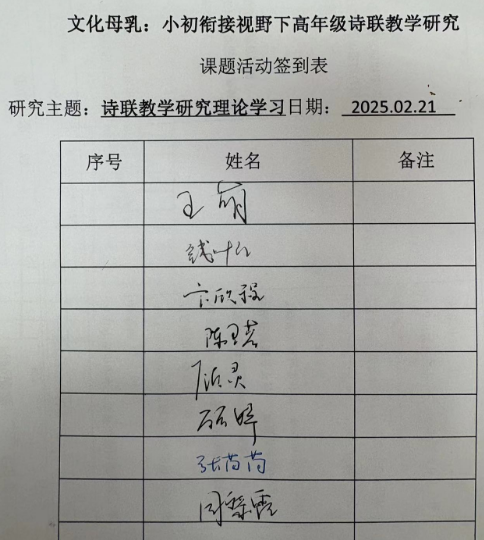 文化母乳：小初衔接视野下高年级诗联教学研究
课题活动签到表
研究主题：诗联教学研究理论学习日期： 2025.02.21
序号 姓名 备注
王
钱
卞欣
陈
灵
张茵茵
周